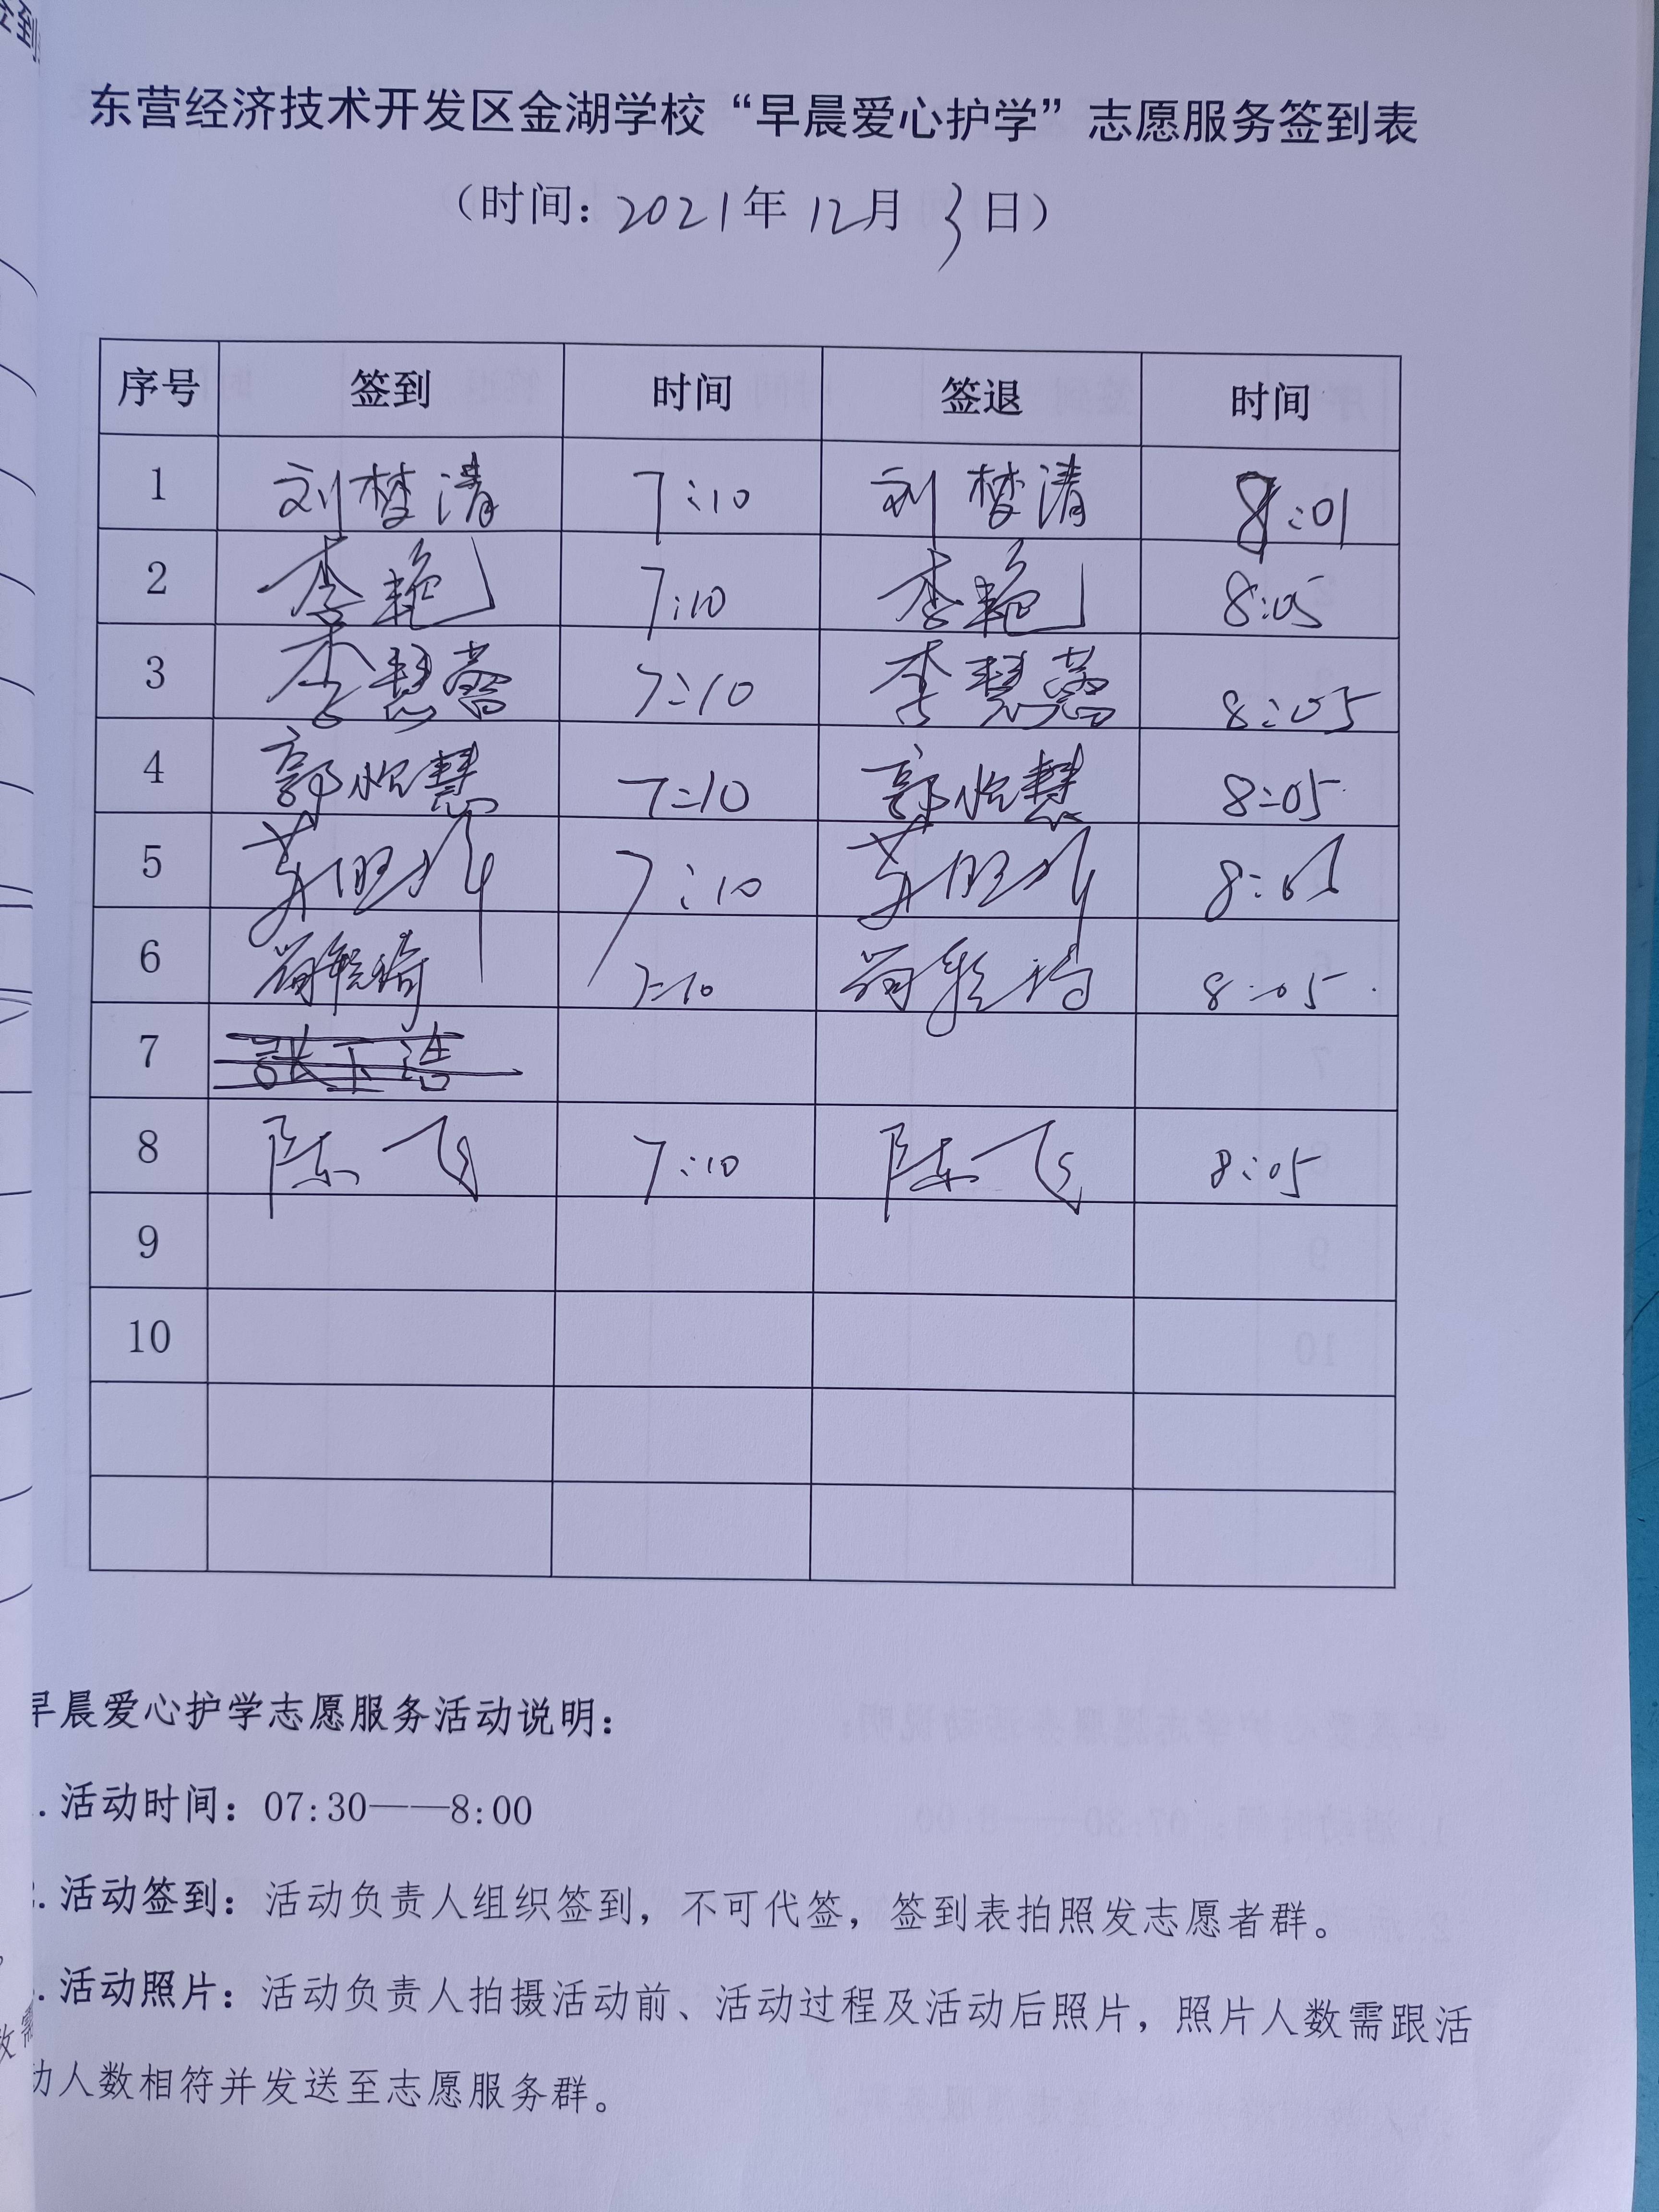 东营经济技术开发区金湖学校“早晨爱心护学”志愿服务签到表
（时间：2021年12月3日）
序号 签到 时间 签退 时间
1 刘梦清 7:10 刘梦清 8:01
2 李艳 7:10 李艳 8:05
3 李慧蓉 7:10 李慧蓉 8:05
4 郭怡慧 7:10 郭怡慧 8:05
5 7:10 8:05
6 7:10 8:05
7
8 陈飞 7:10 陈飞 8:05
9
10
早晨爱心护学志愿服务活动说明：
.活动时间：07:30——8:00
.活动签到：活动负责人组织签到，不可代签，签到表拍照发志愿者群。
.活动照片：活动负责人拍摄活动前、活动过程及活动后照片，照片人数需跟活
动人数相符并发送至志愿服务群。